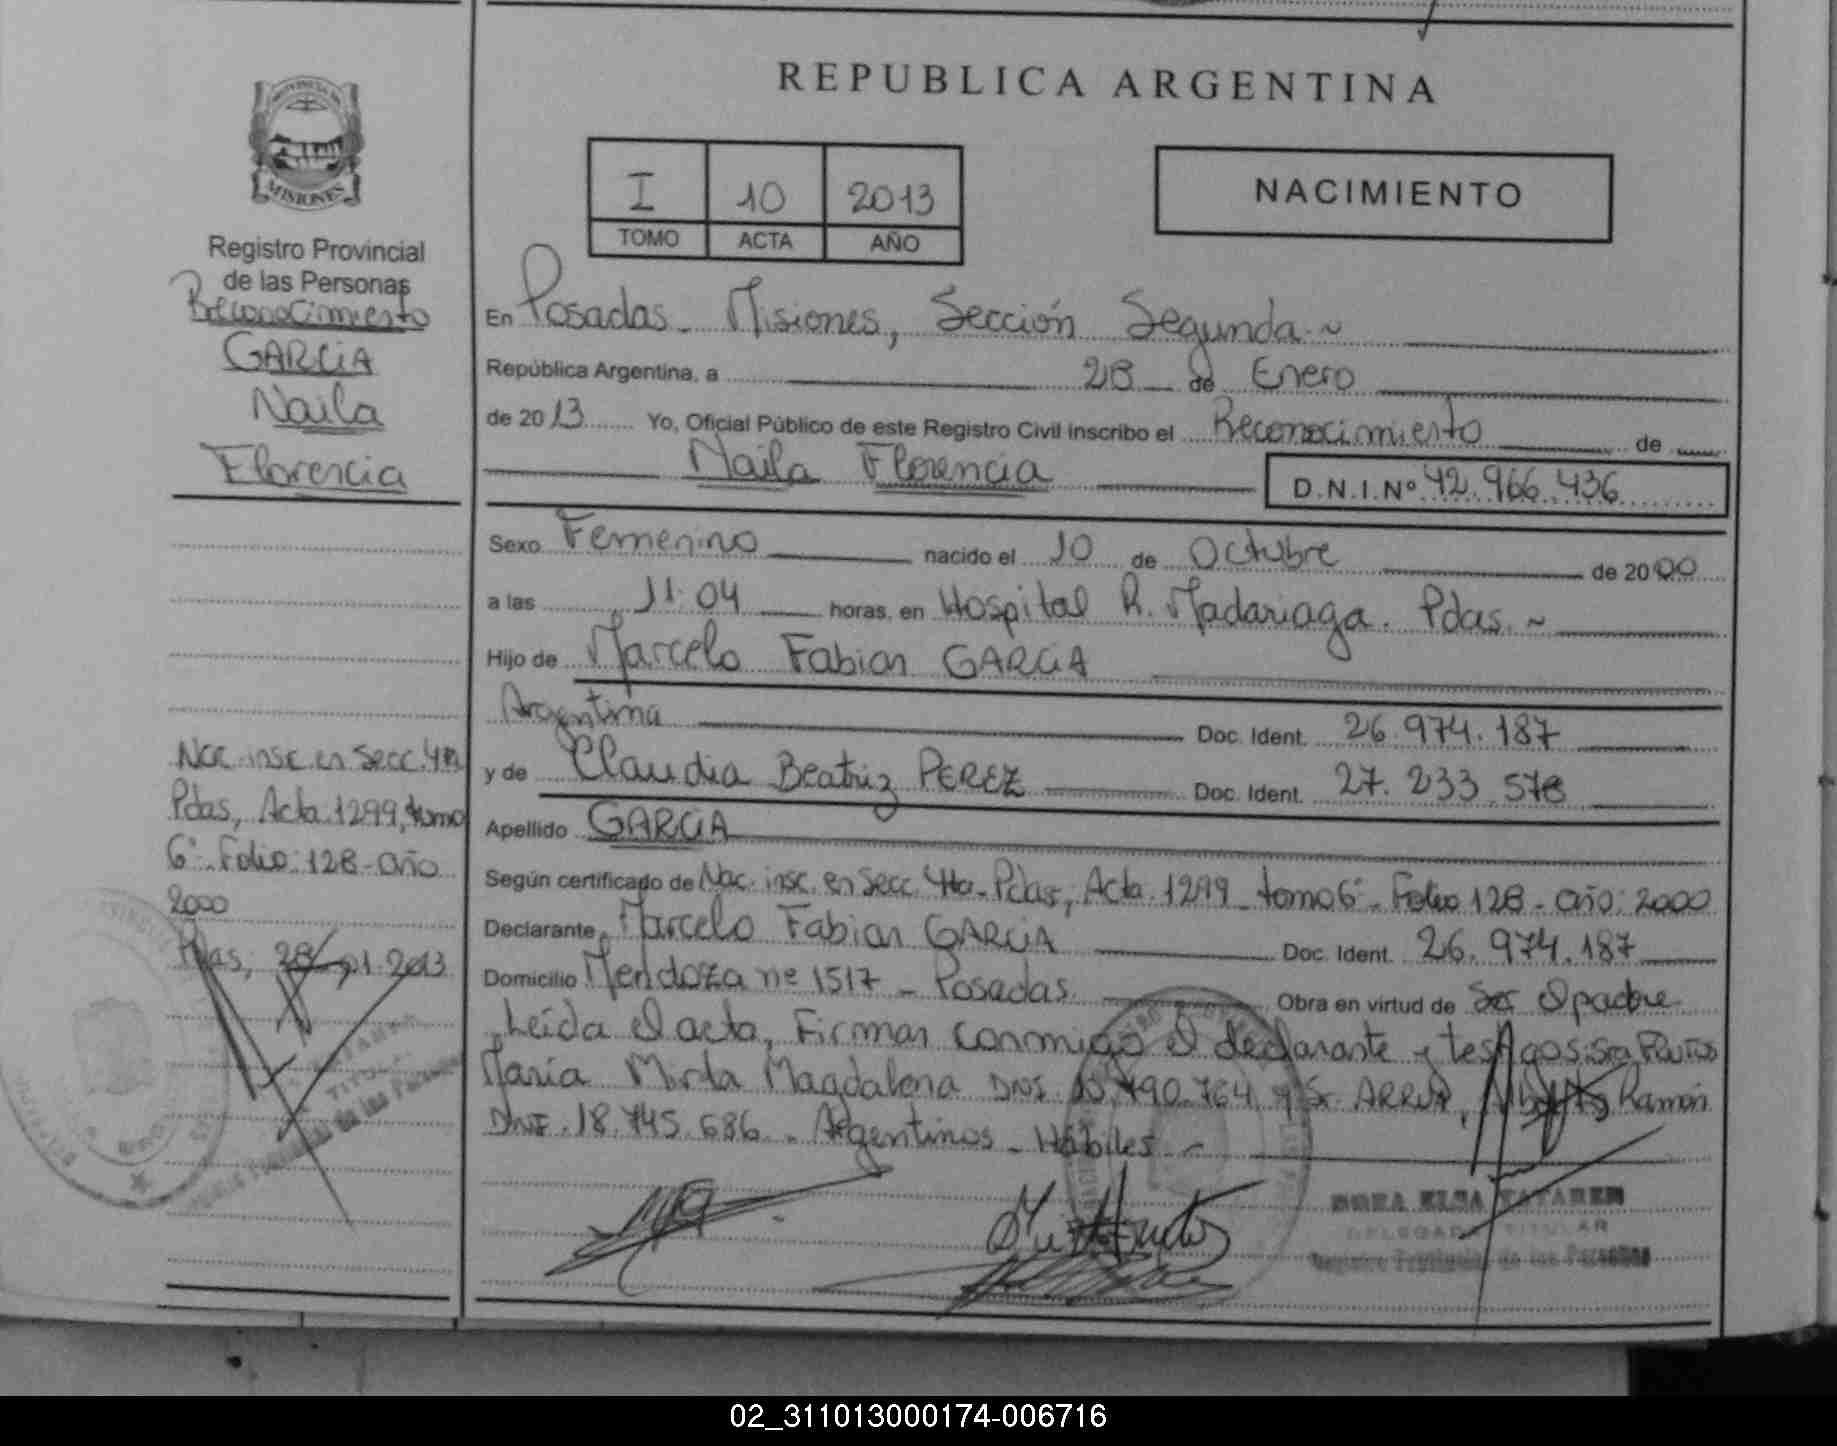 REPUBLICA ARGENTINA
PROVINCIA DE
MISIONES
Registro Provincial
de las Personas
Reconocimiento
GARCIA
Naila
Florencia
Nac. insc. en Secc. 4ta
Pdas, Acta 1299, tomo
6° Folio: 128 - año
2000
Pdas, 28-01-2013
I 10 2013
TOMO ACTA AÑO
NACIMIENTO
En Posadas. Misiones, Sección Segunda ~
República Argentina, a 28 de Enero
de 2013 Yo, Oficial Público de este Registro Civil inscribo el Reconocimiento de
Naila Florencia D.N.I.Nº 42.966.436
Sexo Femenino nacido el 10 de Octubre de 2000
a las 11.04 horas, en Hospital R. Madariaga. Pdas. ~
Hijo de Marcelo Fabian GARCIA
Argentina Doc. Ident. 26.974.187
y de Claudia Beatriz PEREZ Doc. Ident. 27.233.578
Apellido GARCIA
Según certificado de Nac. insc. en Secc. 4ta - Pdas, Acta 1299 - tomo 6° - Folio 128 - año: 2000
Declarante Marcelo Fabian GARCIA Doc. Ident. 26.974.187
Domicilio Mendoza nº 1517 - Posadas Obra en virtud de Ser el padre
Leída el acta, Firman conmigo el declarante y testigos: Sra
María Mirta Magdalena DNI 490.764 y Sr. Ramón
DNI. 18.745.686 - Argentinos - Hábiles -
TITULAR
DELEGADA TITULAR
Registro Provincial de las Personas
02_311013000174-006716